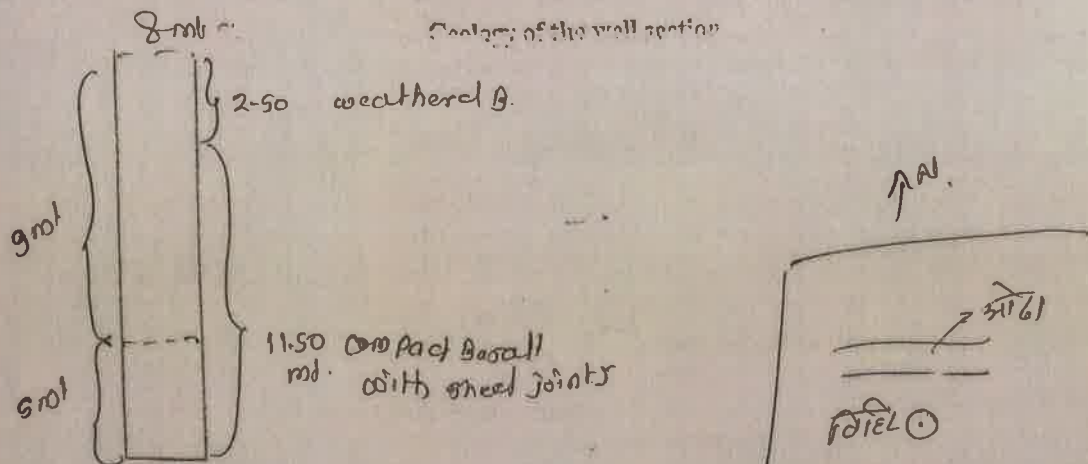 8 mt
Geology of the well section
2-50 weatherd B.
9 mt
11.50 compact Basalt
mt. with sheet joints
5 mt
N.
ओढा
विहिर